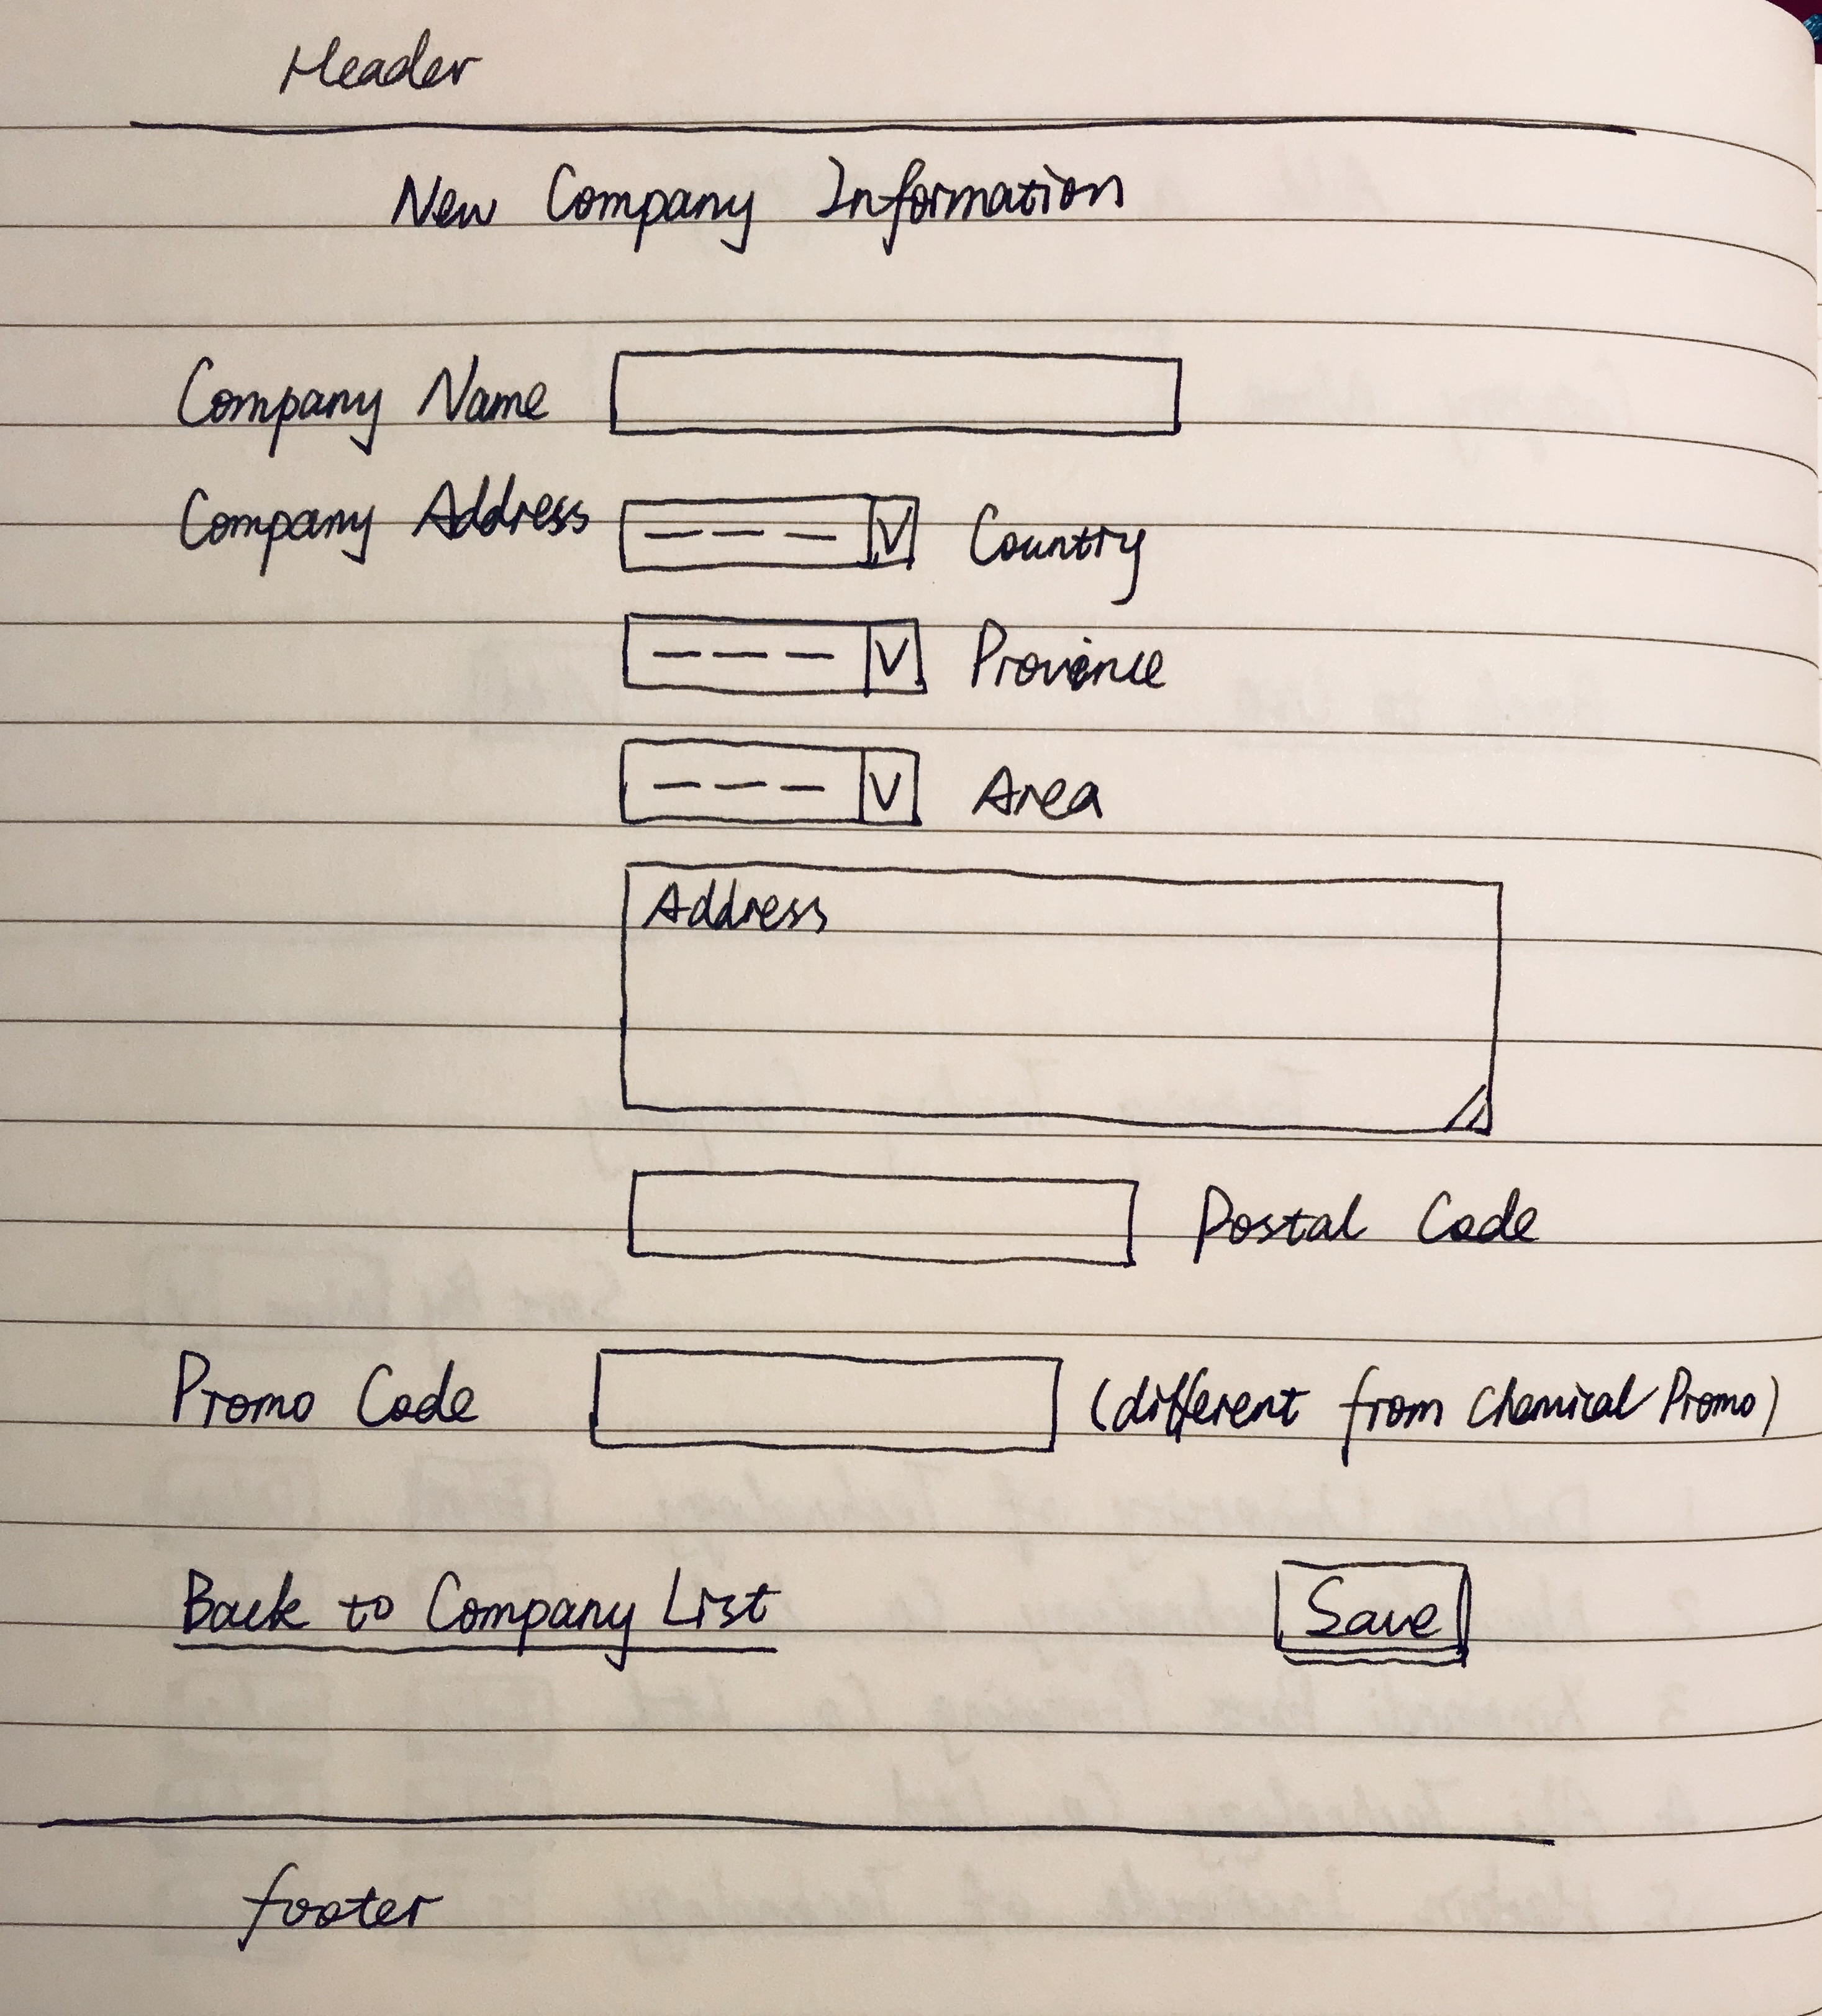 Header
New Company Information
Company Name
Company Address
--- V Country
--- V Province
--- V Area
Address
Postal Code
Promo Code (different from Chemical Promo)
Back to Company List Save
footer